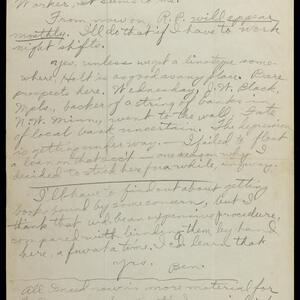 Worker, it seems to me.
From now on, R.P. will appear
monthly. I'll do that if I have to work
night shifts.
Yes, unless we get a linotype some-
where, Holt is as good as any place. Bare
prospects here. Wednesday, J.W. Black,
Mpls, backer of a string of banks in
N.W. Minn, went to the wall. Fate
of local bank uncertain. The depression
is getting under way. — I failed to float
a loan on that scrip — one reason why I
decided to stick here for a while, anyway.
I'll have to find out about getting
books bound by some concern, but I
think that wd. be an expensive procedure,
compared with binding them by hand
here, a few at a time. I can learn that
Yrs.
Ben.
All I need now is more material for